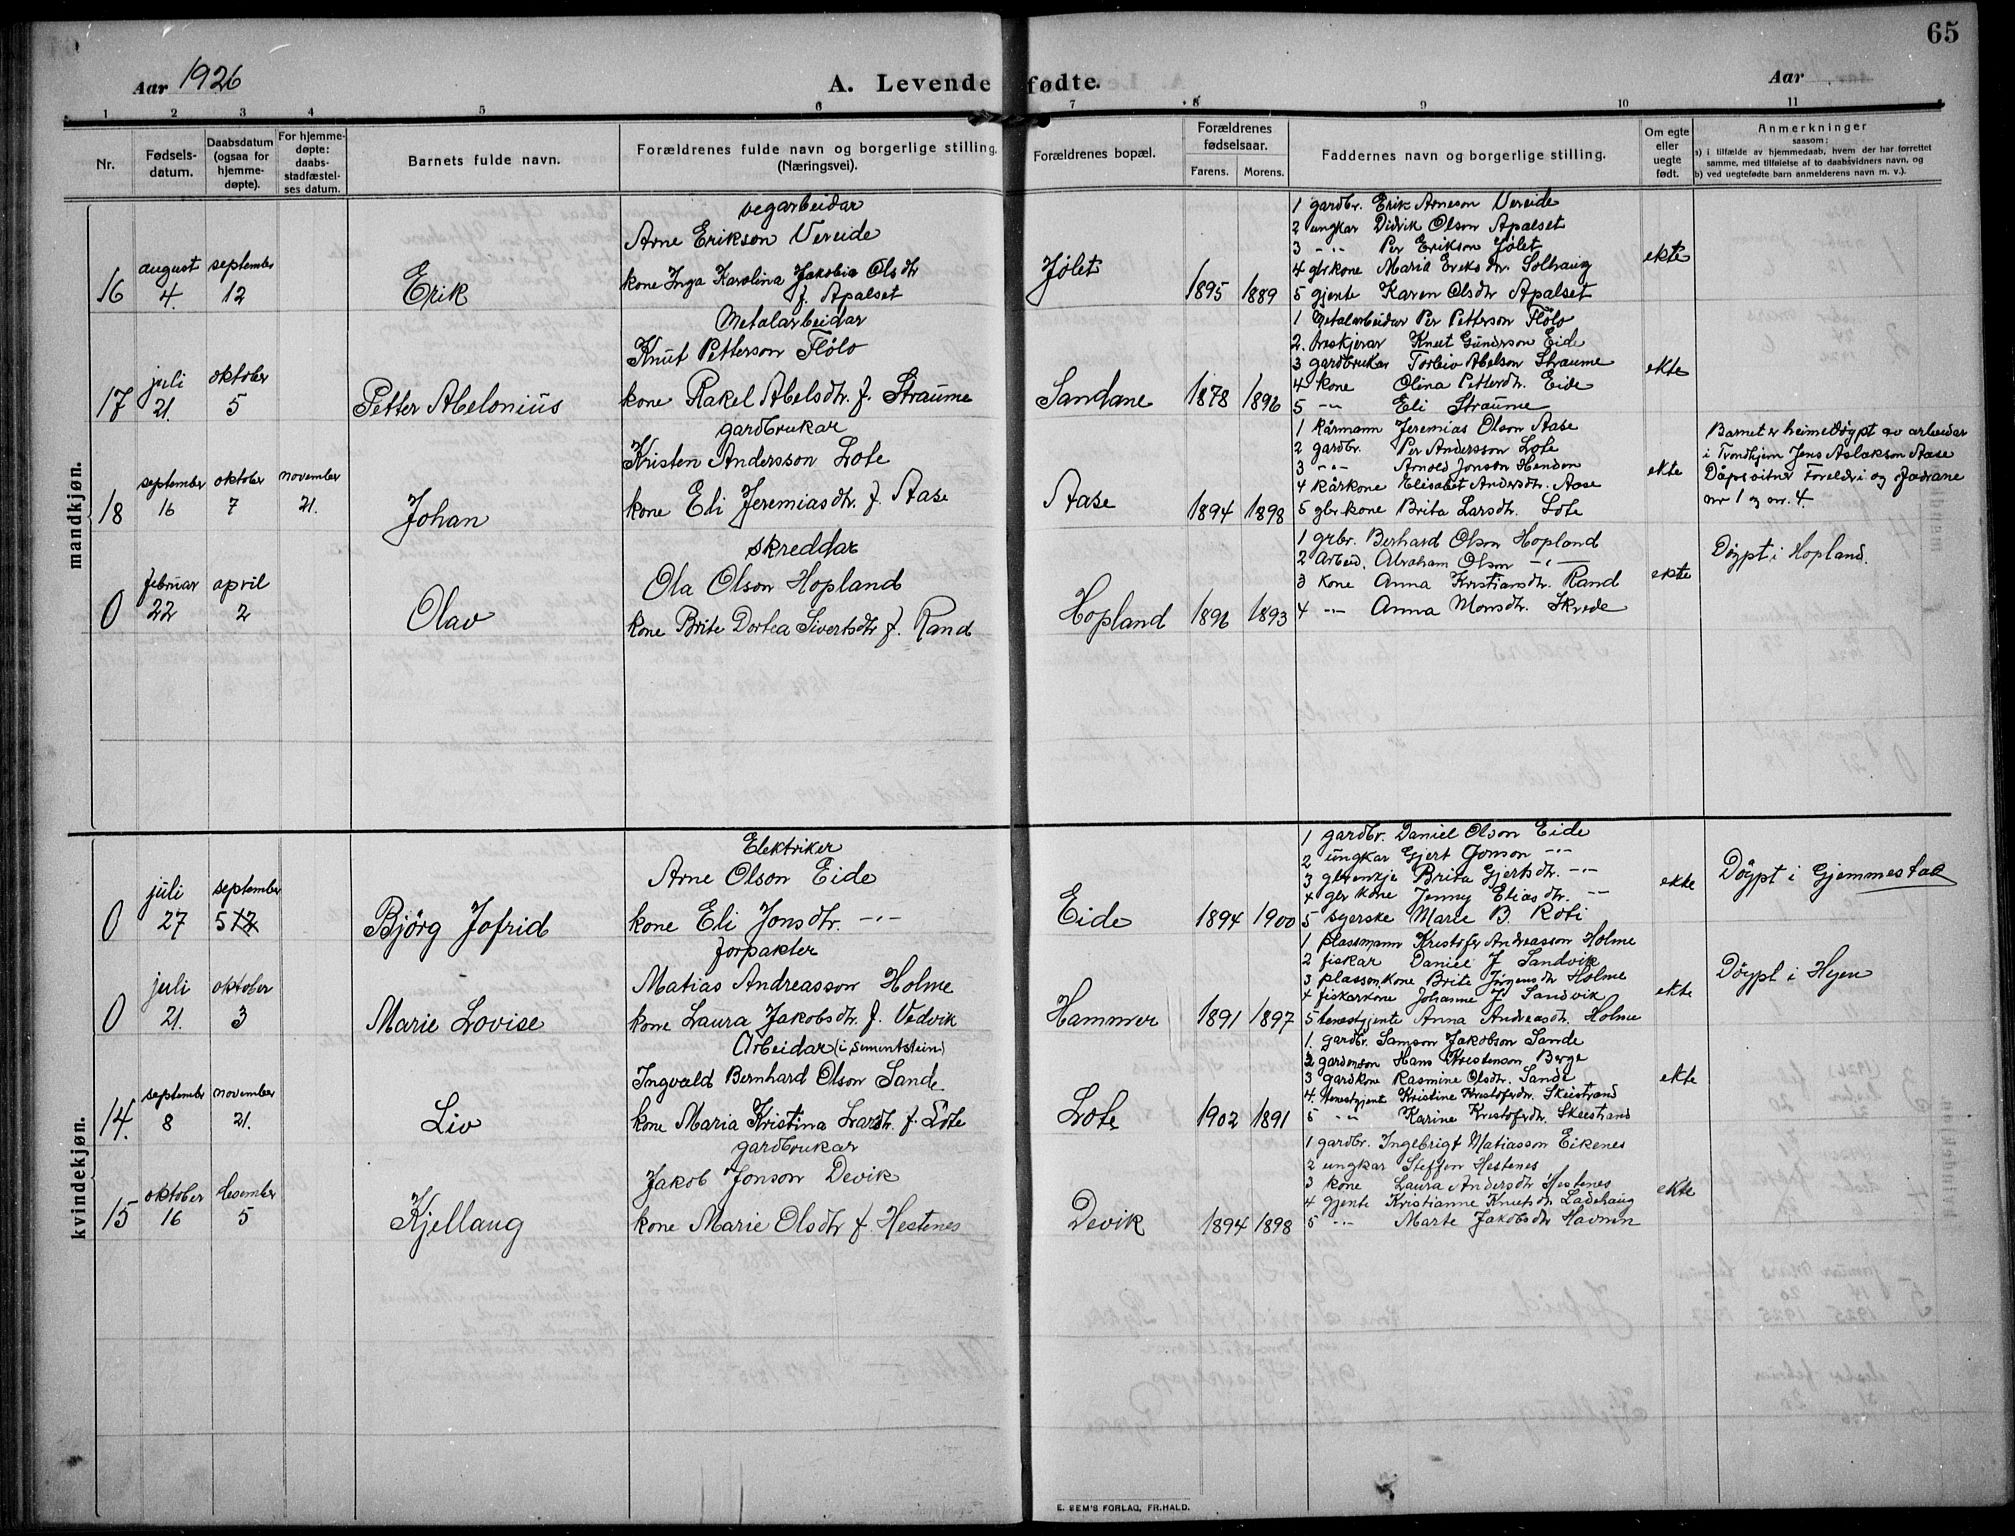 65
Aar 1926
A. Levende fødte.
Aar
1 2 3 4 5 6 7 8 9 10 11
Nr.
Fødsels-
datum.
Daabsdatum
(ogsaa for
hjemme-
døpte).
For hjemme-
døpte:
daabs-
stadfæstel-
ses datum.
Barnets fulde navn.
Forældrenes fulde navn og borgerlige stilling.
(Næringsvei).
Forældrenes bopæl.
Forældrenes
fødselsaar.
Farens. Morens.
Faddernes navn og borgerlige stilling.
Om egte
eller
uegte
født.
Anmerkninger
saasom:
a) i tilfælde av hjemmedaab, hvem der har forrettet
samme, med tilføielse af to daabsvidners navn, og
b) ved uegtefødte barn anmelderens navn m. v.).
mandkjøn.
16
august
4.
september
12
Erik
vegarbeidar
Arne Erikson Vereide
kone Inga Karolina Jakobia Olsdtr
f. Apalset
Jølet
1895 1889
1 gardbr. Erik Arneson Vereide
2 ungkar Didrik Olson Apalset
3 -"- Per Erikson Jølet
4 gbrkone Maria Eriksdtr. Solhaug
5 gjente Karen Olsdtr Apalset
ekte
17
juli
21.
oktober
5
Petter Abelonius
Metalarbeidar
Knut Petterson Flölo
kone Rakel Abelsdtr. f. Straume
Sandane
1878 1896
1 Metalarbeidar Per Petterson Flölo
2. Knut Gunderson Eide
3 gardbrukar Torleiv Abelson Straume
4 kone Olina Petterdtr. Eide
5 -"- Eli Straume
ekte
18
september
16
oktober
7
november
21.
Johan
gardbrukar
Kristen Andersson Lote
kone Eli Jeremiasdtr. f. Aase
Aase
1894 1898
1 Kårmann Jeremias Olson Aase
2 gardbr. Per Andersson Lote
3 -"- Arnold Jonson Henden
4 Kårkone Elisabet Andersdtr. Aase
5 gbrkone Brita Larsdtr. Lote
ekte
Barnet er heimedøypt av arbeidar
i Trondhjem Jens Aslakson Aase
Dåpsvitner Foreldri og fadrane
nr 1 og nr. 4.
0
februar
22
april
2
Olav
skreddar
Ola Olson Hopland
kone Brite Dortea Sivertsdtr f. Rand
Hopland
1896 1893
1 grbr. Berhard Olson Hopland
2 Arbeid. Abraham Olson -"-
3 kone Anna Kristiansdtr. Rand
4 -"- Anna Monsdtr. Skrede
ekte
Døypt i Hopland.
kvindekjøn.
0
juli
27
september
5 12
Bjørg Jofrid
Elektriker
Arne Olson Eide
kone Eli Jonsdtr. -"-
Eide
1894 1900
1 gardbr. Daniel Olson Eide
2 ungkar Gjert Jonson -"-
3 gbr.enkje Brita Gjertsdtr. -"-
4 gbr kone Jenny Eliasdtr -"-
5 syerske Marie B. Roti
ekte
Døypt i Gjemmestad
0
juli
21.
oktober
3
Marie Lovise
Forpakter
Matias Andreasson Holme
kone Laura Jakobsdtr. f. Vedvik
Hammer
1891 1897
1 plassmann Kristofer Andreasson Holme
2 fiskar Daniel J. Sandvik
3 plassm.kone Brite Jørgensdtr Holme
4 fiskarkone Johanne J. Sandvik
5 tenestgjente Anna Andreasdtr. Holme
ekte
Døypt i Hyen
14.
september
8
november
21.
Liv
Arbeidar (i sementstein)
Ingvald Bernhard Olson Sande
kone Maria Kristina Larsdtr f. Lote
Lote
1902 1891
1. gardbr. Samson Jakobson Sande
2 gardmann Hans Kristenson Berge
3 gardkone Rasmine Olsdtr. Sande
4. tenestgjente Kristine Kristofersdtr. Skeistrand
5 -"- Karine Kristofersdtr. Skeistrand
ekte
15
oktober
16
desember
5
Kjellaug
gardbrukar
Jakob Jonson Devik
kone Marie Olsdtr f. Hestenes
Devik
1894 1898
1 gardbr. Ingebrigt Matiasson Eikenes
2 ungkar Steffen Hestenes
3 kone Laura Andersdtr Hestenes
4 gjente Kristianne Knutsdtr Ladehaug
5 -"- Marte Jakobsdtr Havnen
ekte
E. SEM'S FORLAG, FR.HALD.